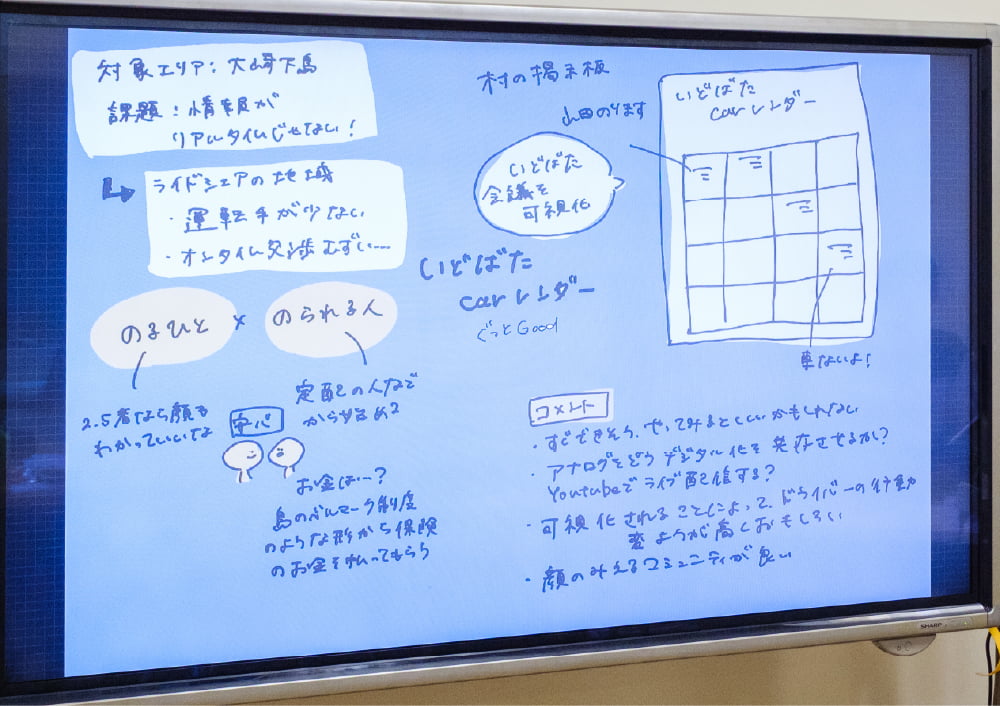 対象エリア:大崎下島
課題:情報が
リアルタイムじゃない!
ライドシェアの地域
・運転手が少ない
・オンタイム交渉むずい……
のるひと × のられる人
2.5者なら顔も
わかっていいな
定配の人など
からやるめ?
安パ
お金は…?
島のベルマーク制度
のような形から保険
のお金を払ってもらう
村の掲示板
山田のります
いどばた
会議を
可視化
いどばた
carレンダー
ぐっとGood
いどばた
carレンダー
車ないよ!
コメント
・すぐできそう、やってみるといいかもしれない
・アナログをどうデジタル化を発展させるか?
Youtubeでライブ配信する?
・可視化されることによって、ドライバーの行動
変ようが高くおもしろい
・顔のみえるコミュニティが良い
SHARP